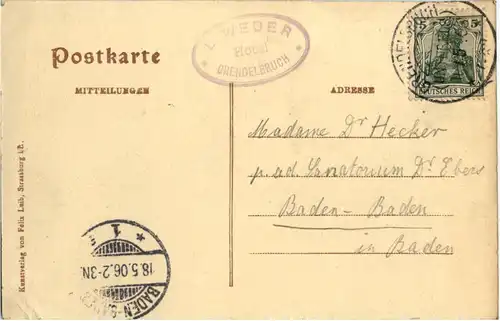 L. WEBER
Hotel
GRENDELBRUCH
5 5
DEUTSCHES REICH
Postkarte
MITTEILUNGEN
ADRESSE
Madame Dr Hecker
p. ad. Sanatorium Dr Ebers
Baden-Baden
in Baden
* 1 *
18.5.06.2-3N.
BADEN-BADEN
Kunstverlag von Felix Luib, Strassburg i/E.